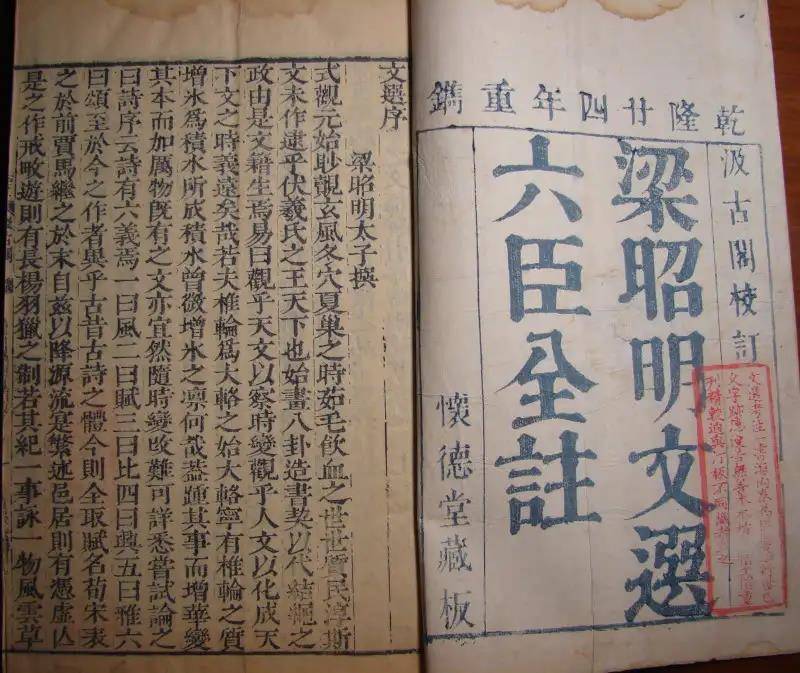 乾隆廿四年重鐫
汲古閣校訂
梁昭明文選
六臣全註
懷德堂藏板
文選序
梁昭明太子撰
式觀元始眇覿玄風冬穴夏巢之時茹毛飲血之世世質民淳斯
文未作逮乎伏羲氏之王天下也始畫八卦造書契以代結繩之
政由是文籍生焉易曰觀乎天文以察時變觀乎人文以化成天
下文之時義遠矣哉若夫椎輪爲大輅之始大輅寧有椎輪之質
增氷爲積水所成積水曾微增氷之凛何哉葢踵其事而增華變
其本而加厲物既有之文亦宜然隨時變改難可詳悉嘗試論之
曰詩序云詩有六義焉一曰風二曰賦三曰比四曰興五曰雅六
曰頌至於今之作者異乎古昔古詩之體今則全取賦名荀宋表
之於前賈馬繼之於末自茲以降源流寔繁述邑居則有憑虛亾
是之作戒畋遊則有長楊羽獵之制若其紀一事詠一物風雲草